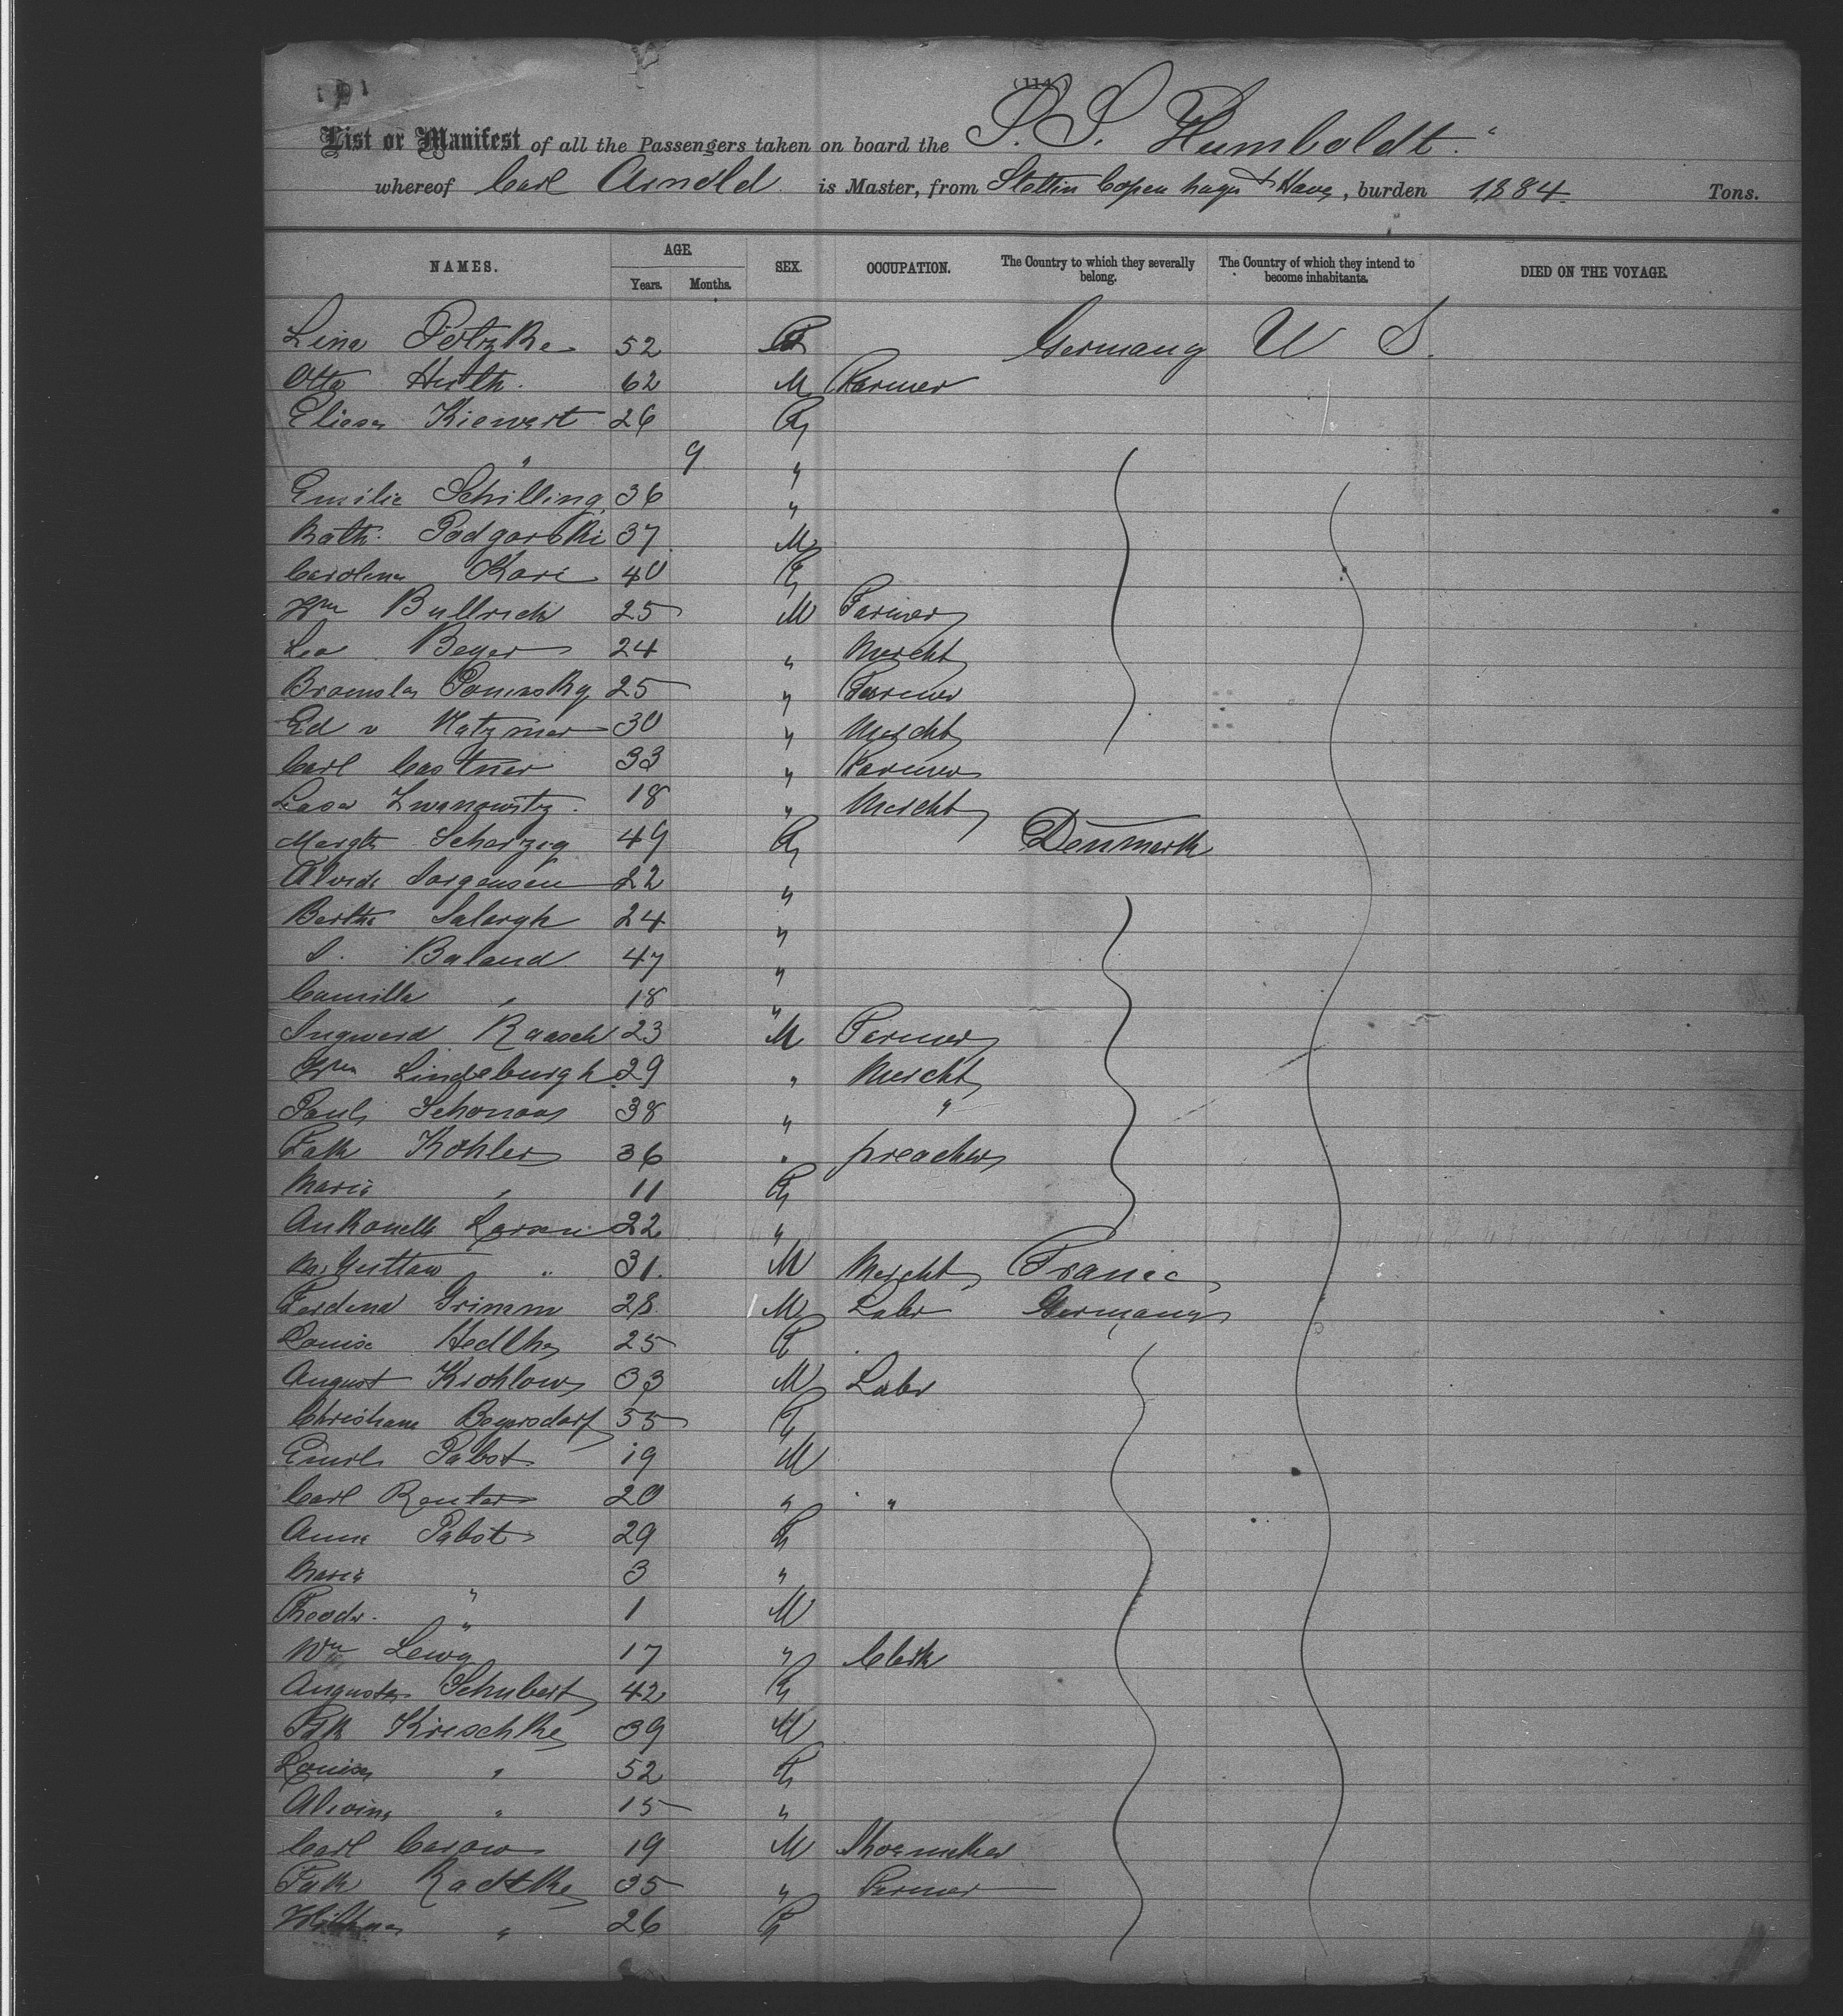 (114)
List or Manifest of all the Passengers taken on board the S. S. Humboldt."
whereof Carl Arnold is Master, from Stettin Copenhagn & Havr, burden 1884. Tons.
NAMES. AGE. Years. Months. SEX. OCCUPATION. The Country to which they severally belong. The Country of which they intend to become inhabitants. DIED ON THE VOYAGE.
Lina 52 F Germany U S.
Otto Huth. 62 M Farmer
Eliese Kiewert 26 F
" 9 "
Emilie Schilling 36 "
Kath. Podgorski 37 M
Carolina Kari 40 F
Wm Bullrich 25 M Farmer
Leo Beyer 24 " Mercht
25 " Farmer
Ed v 30 " Mercht
Carl Castner 33 " Farmer
18 " Mercht
Margth 49 F Denmark
Jorgensen 22 "
Bertha 24 "
S. Baland 47 "
Camilla " 18 "
Ingward Raasch 23 M Farmer
Wm Lindeburgh 29 " Mercht
Pauli 38 " "
Köhler 36 " preacher
Maria " 11 F
Larsen 22 "
Gustav " 31. M Mercht France
Ferdind Grimm 28 M Labr Germany
Louise 25 F
August Krohlow 33 M Labr
Christiane Beyersdorf 55 F
Emil Pabst 19 M
Carl Reuter 20 " "
Anna Pabst 29 F
Maria " 3 "
Theodr. " 1 M
Wm 17 " Clerk
Augusta Schubert 42 F
39 M
Louise " 52 F
Alwine " 15 "
Carl Carow 19 M Shoemaker
Radtke 35 " Farmer
" 26 F